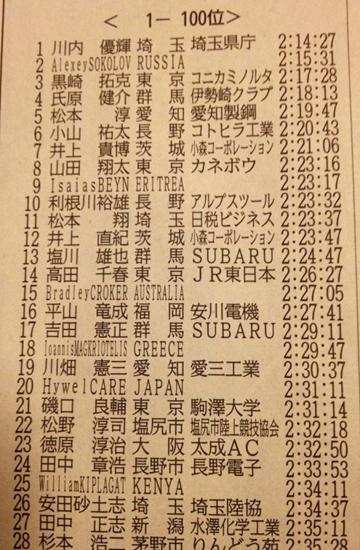 < 1― 100位 >
1 川内 優輝 埼 玉 埼玉県庁 2:14:27
2 AlexeySOKOLOV RUSSIA 2:15:31
3 黒崎 拓克 東 京 コニカミノルタ 2:17:28
4 氏原 健介 群 馬 伊勢崎クラブ 2:18:13
5 松本 淳 愛 知 愛知製鋼 2:19:47
6 小山 祐太 長 野 コトヒラ工業 2:20:43
7 井上 貴博 茨 城 小森コーポレーション 2:21:06
8 山田 翔太 東 京 カネボウ 2:23:16
9 IsaiasBEYN ERITREA 2:23:17
10 利根川裕雄 長 野 アルプスツール 2:23:32
11 松本 翔 埼 玉 日税ビジネス 2:23:37
12 井上 直紀 茨 城 小森コーポレーション 2:23:47
13 塩川 雄也 群 馬 SUBARU 2:24:47
14 高田 千春 東 京 JR東日本 2:26:27
15 BradleyCROKER AUSTRALIA 2:27:05
16 平山 竜成 福 岡 安川電機 2:27:41
17 吉田 憲正 群 馬 SUBARU 2:29:11
18 IoannisMAGKRIOTELIS GREECE 2:29:47
19 川畑 憲三 愛 知 愛三工業 2:30:37
20 HywelCARE JAPAN 2:31:11
21 磯口 良輔 東 京 駒澤大学 2:31:14
22 松野 淳司 塩尻市 塩尻市陸上競技協会 2:32:18
23 徳原 淳治 大 阪 太成AC 2:32:50
24 田中 章浩 長野市 長野電子 2:33:53
25 WilliamKIPLAGAT KENYA 2:34:11
26 安田砂土志 埼 玉 埼玉陸協 2:34:37
27 田中 正志 新 潟 水澤化学工業 2:35:11
28 杉本 浩二 茅野市 りんどう苑 2:35:28